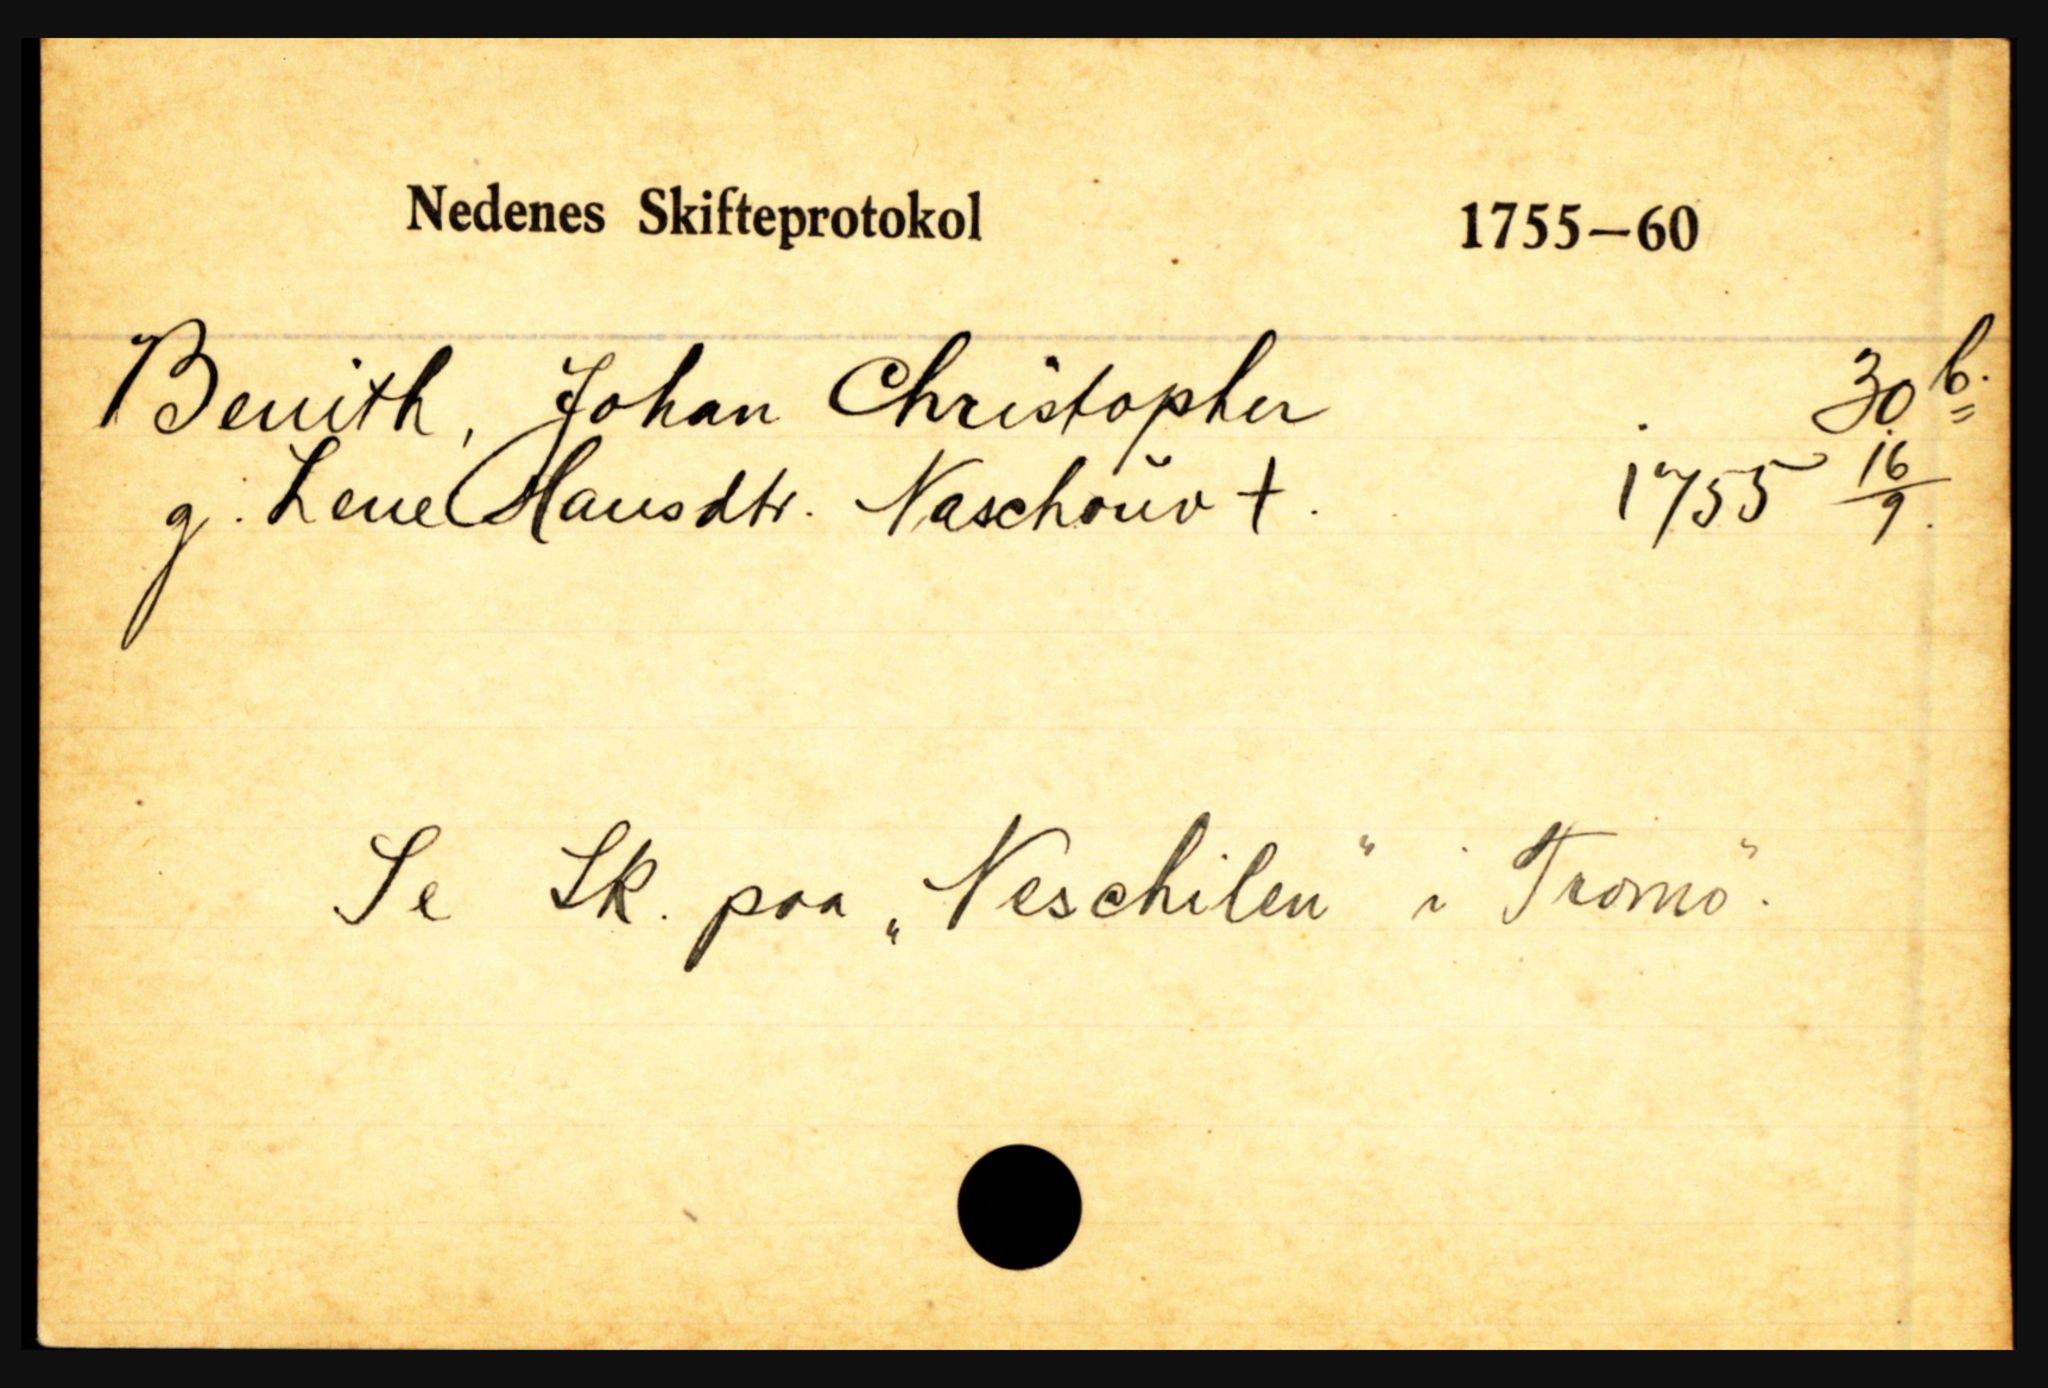 Nedenes Skifteprotokol 1755–60
Benith, Johan Christopher 30 b.
g. Lene Hansdtr. Naschouv †. 1755 16/9.
Se Sk. paa „Neschilen" i Tromö.